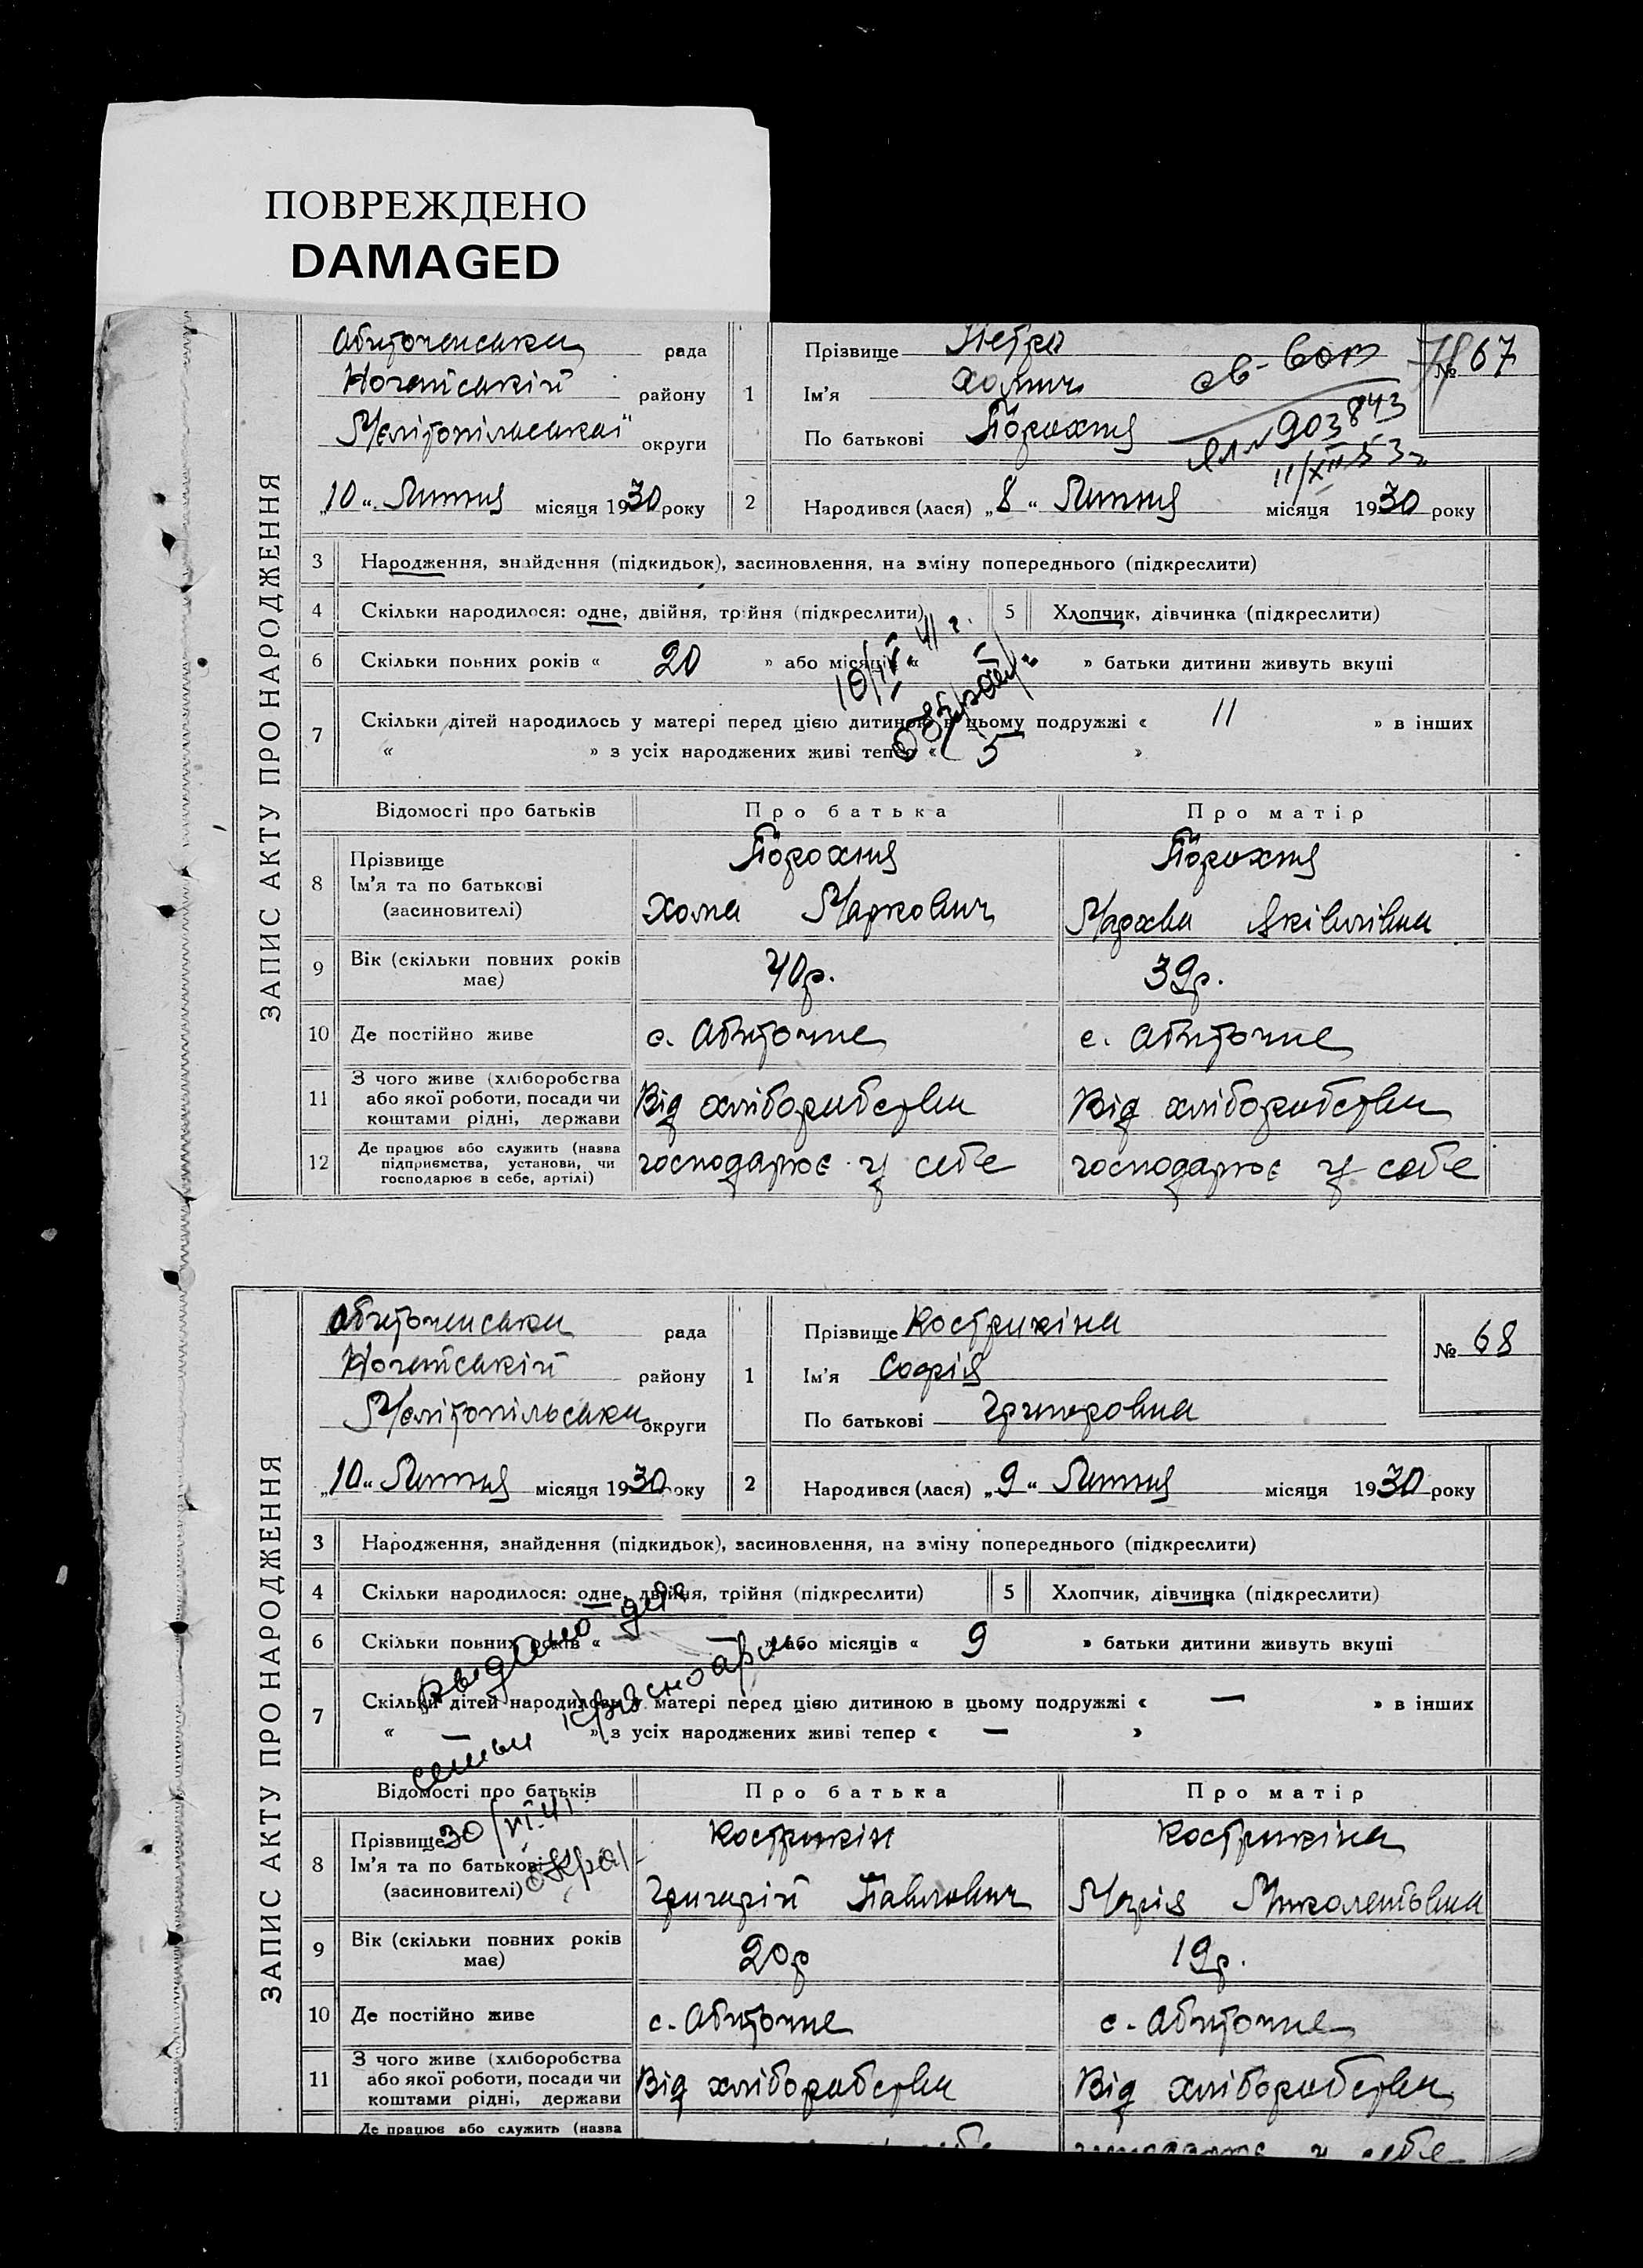 ПОВРЕЖДЕНО
DAMAGED
ЗАПИС АКТУ ПРО НАРОДЖЕННЯ
Обиточенська рада
Ногайський району
Мелітопільської округи
„10“ Лютня місяця 1930 року
1
Прізвище Петро
Ім’я Хомич
По батькові
№ 67
903843
11/XII 53
2
Народився (лася) „8“ Лютня місяця 1930 року
3 Народження, знайдення (підкидьок), засиновлення, на зміну попереднього (підкреслити)
4 Скільки народилося: одне, двійня, трійня (підкреслити)
5 Хлопчик, дівчинка (підкреслити)
6 Скільки повних років « 20 » або місяців « » батьки дитини живуть вкупі
10/IV 41 г.
7 Скільки дітей народилось у матері перед цією дитиною в цьому подружжі « 11 » в інших
« » з усіх народжених живі тепер « 5 »
Відомості про батьків Про батька Про матір
8 Прізвище
Ім’я та по батькові
(засиновителі)
Хома Маркович
9 Вік (скільки повних років має) 40р. 39р.
10 Де постійно живе с. Обиточне с. Обиточне
11 З чого живе (хліборобства або якої роботи, посади чи коштами рідні, держави Від хліборобства Від хліборобства
12 Де працює або служить (назва підприємства, установи, чи господарює в себе, артілі) господарює у себе господарює у себе
ЗАПИС АКТУ ПРО НАРОДЖЕННЯ
Обиточенська рада
Ногайський району
Мелітопільська округи
„10“ Лютня місяця 1930 року
1
Прізвище Кострикіна
Ім’я Софія
По батькові Григоровна
№ 68
2
Народився (лася) „9“ Лютня місяця 1930 року
3 Народження, знайдення (підкидьок), засиновлення, на зміну попереднього (підкреслити)
4 Скільки народилося: одне, двійня, трійня (підкреслити)
5 Хлопчик, дівчинка (підкреслити)
6 Скільки повних років « — » або місяців « 9 » батьки дитини живуть вкупі
7 Скільки дітей народилось у матері перед цією дитиною в цьому подружжі « — » в інших
« » з усіх народжених живі тепер « — »
выдано для
семьи красноарм.
30/VI.41
Відомості про батьків Про батька Про матір
8 Прізвище Кострикін Кострикіна
Ім’я та по батькові
(засиновителі)
Григорій Павлович Марія
9 Вік (скільки повних років має) 20р 19р.
10 Де постійно живе с. Обиточне с. Обиточне
11 З чого живе (хліборобства або якої роботи, посади чи коштами рідні, держави Від хліборобства Від хліборобства
Де працює або служить (назва
господарює у себе